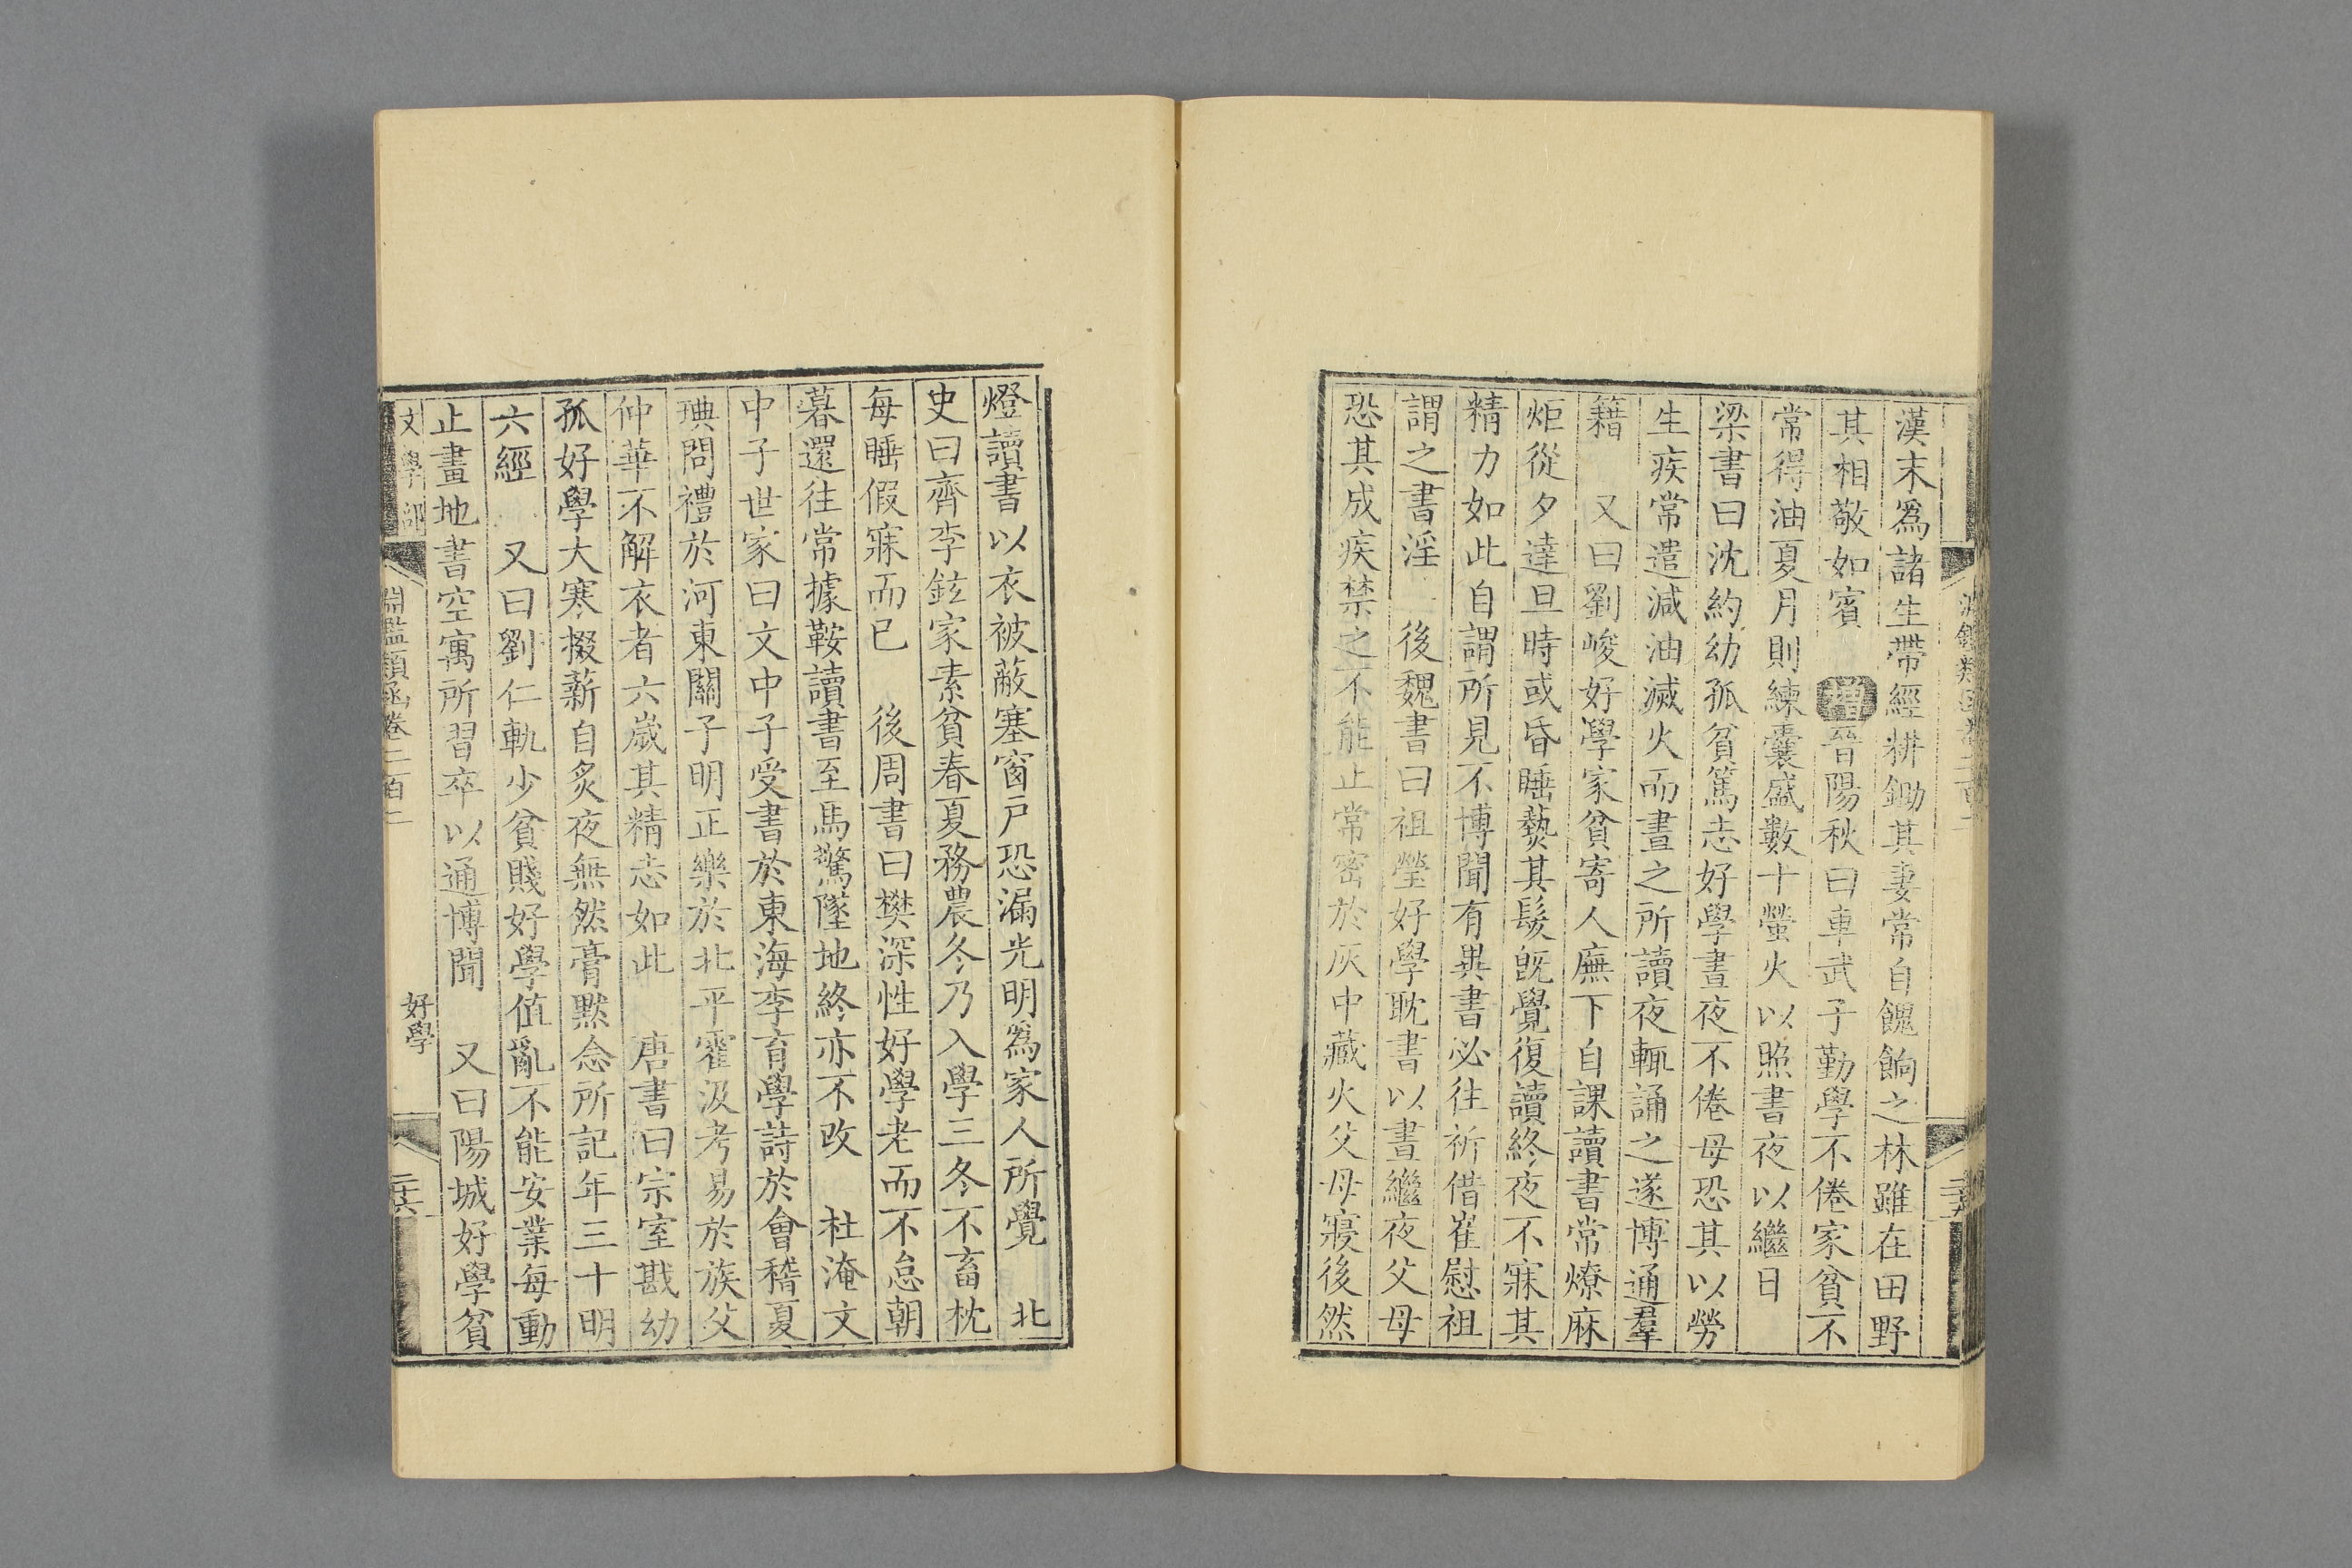 漢末爲諸生帶經耕鋤其妻常自餽餉之林雖在田野
其相敬如賓 增晉陽秋曰車武子勤學不倦家貧不
常得油夏月則練囊盛數十螢火以照書夜以繼日
梁書曰沈約幼孤貧篤志好學晝夜不倦母恐其以勞
生疾常遣減油滅火而晝之所讀夜輒誦之遂博通羣
籍 又曰劉峻好學家貧寄人廡下自課讀書常燎麻
炬從夕達旦時或昏睡爇其髮旣覺復讀終夜不寐其
精力如此自謂所見不博聞有異書必往祈借崔慰祖
謂之書淫 後魏書曰祖瑩好學耽書以晝繼夜父母
恐其成疾禁之不能止常密於灰中藏火父母寢後然
燈讀書以衣被蔽塞窗戸恐漏光明爲家人所覺 北
史曰齊李鉉家素貧春夏務農冬乃入學三冬不畜枕
每睡假寐而已 後周書曰樊深性好學老而不怠朝
暮還往常據鞍讀書至馬驚墜地終亦不改 杜淹文
中子世家曰文中子受書於東海李育學詩於會稽夏
琠問禮於河東關子明正樂於北平霍汲考易於族父
仲華不解衣者六歲其精志如此 唐書曰宗室戡幼
孤好學大寒掇薪自炙夜無然膏默念所記年三十明
六經 又曰劉仁軌少貧賤好學値亂不能安業每動
止畫地書空寓所習卒以通博聞 又曰陽城好學貧
文學部 淵鑑類函卷二百二 好學 二十六